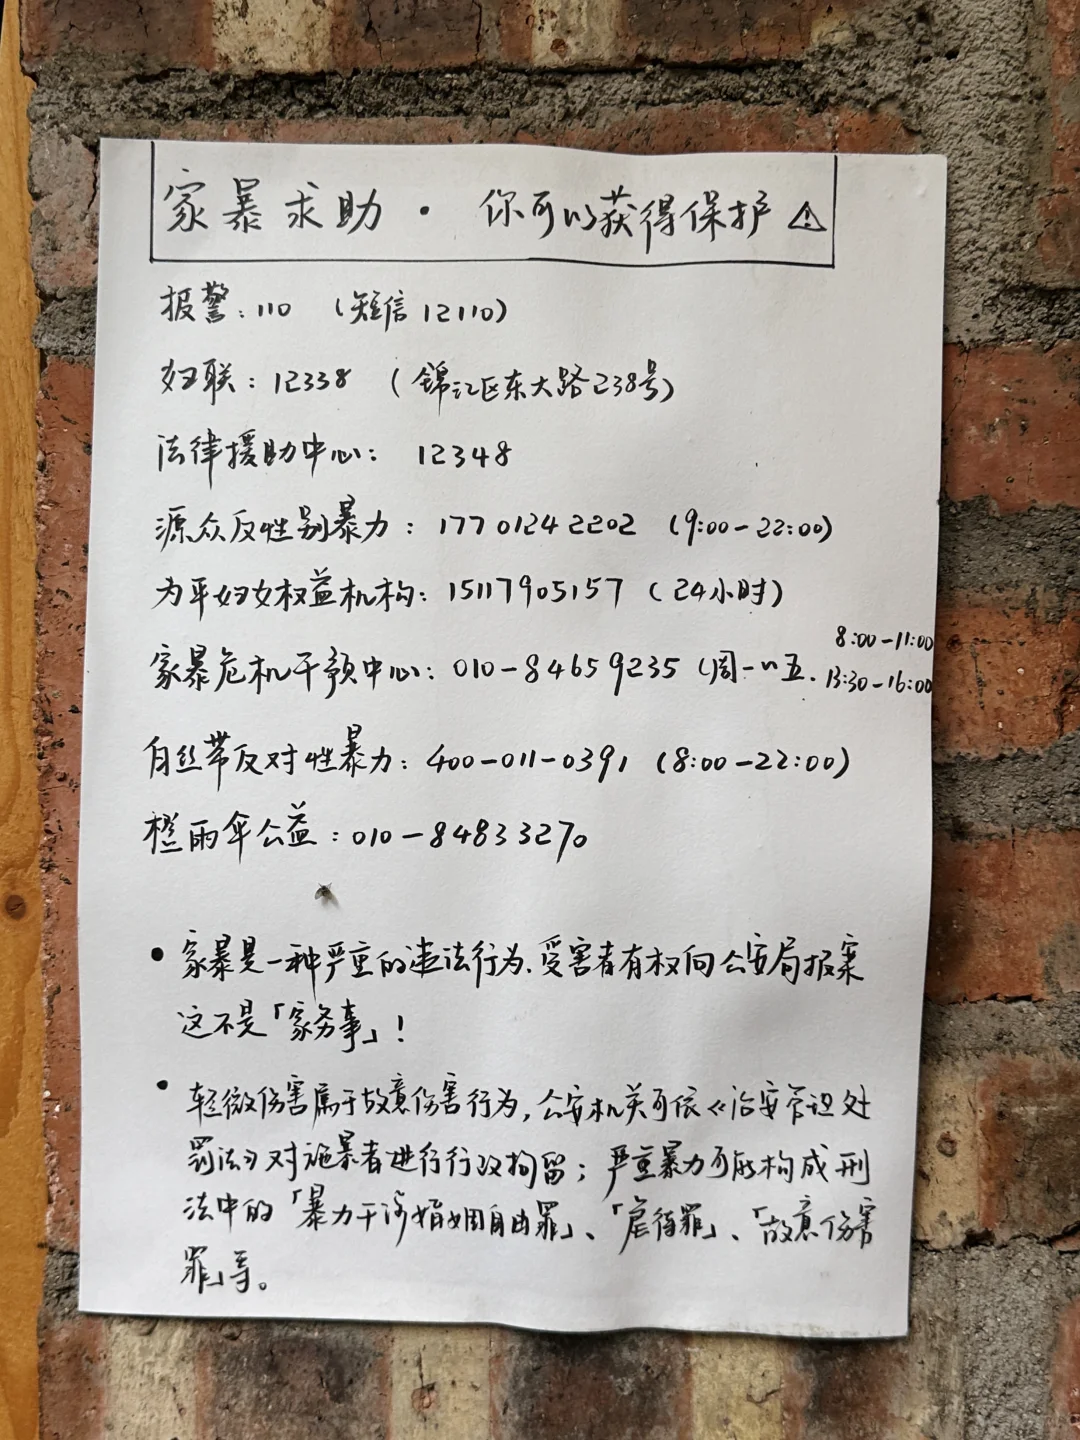 家暴求助 · 你可以获得保护 ⚠
报警：110 （短信12110）
妇联：12338 （锦江区东大路238号）
法律援助中心： 12348
源众反性别暴力：17701242202 （9:00-22:00）
为平妇女权益机构：15117905157 （24小时）
家暴危机干预中心：010-84659235 （周一~五. 8:00-11:00
13:30-16:00
白丝带反对性暴力：400-011-0391 （8:00-22:00）
橙雨伞公益：010-84833270
• 家暴是一种严重的违法行为、受害者有权向公安局报案
这不是「家务事」！
• 轻微伤害属于故意伤害行为，公安机关可依《治安管理处
罚法》对施暴者进行行政拘留；严重暴力可能构成刑
法中的「暴力干涉婚姻自由罪」、「虐待罪」、「故意伤害
罪」等。